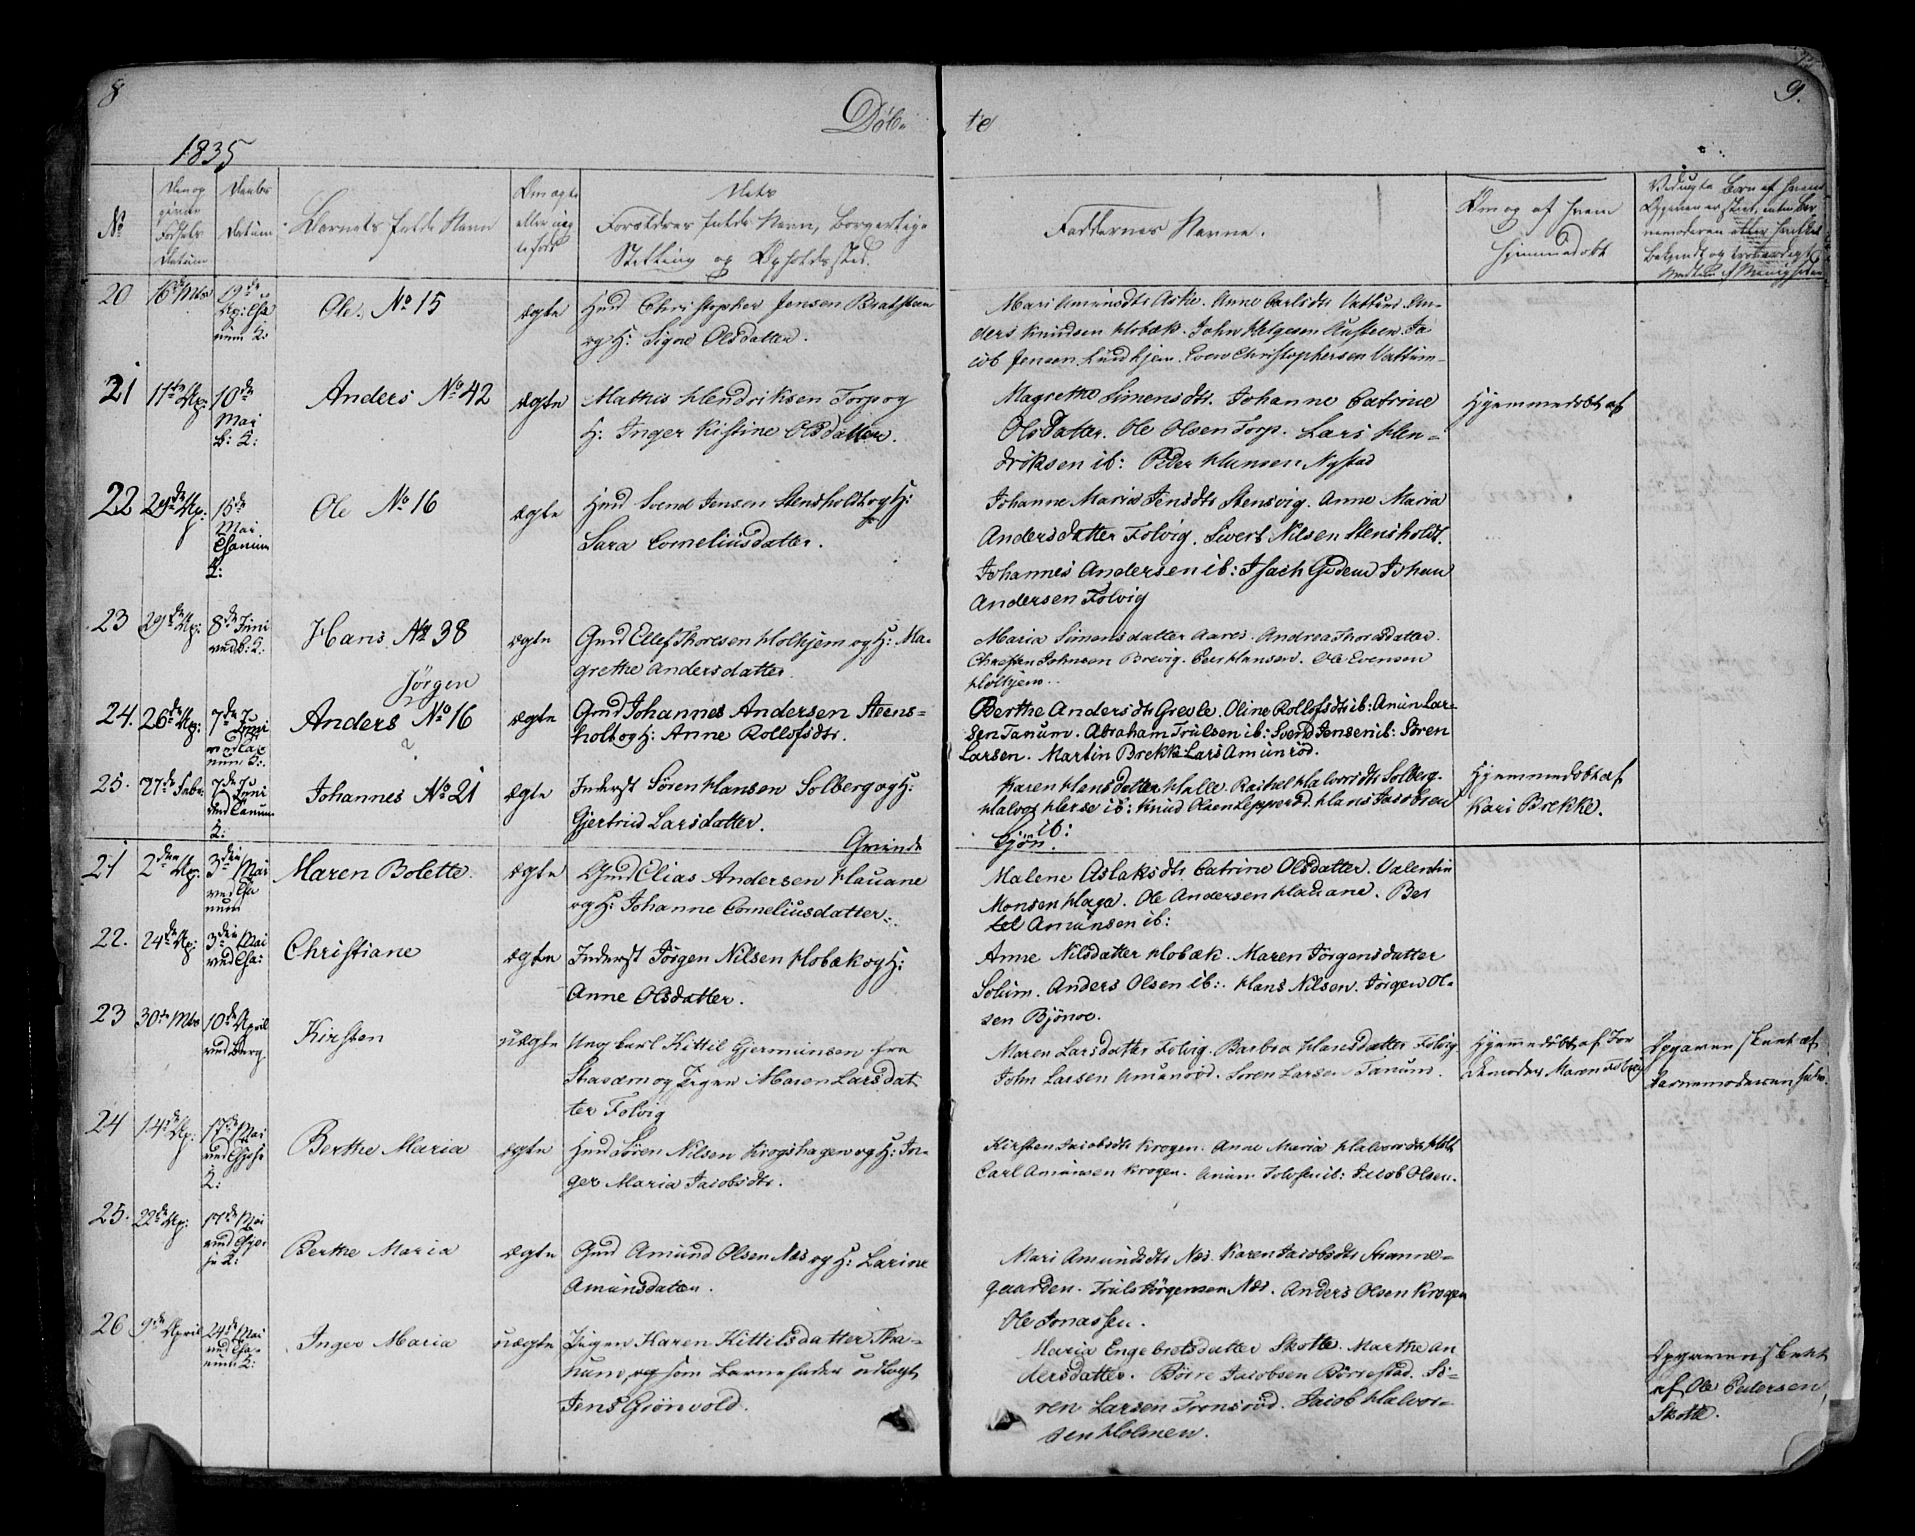 8
Døb-
te
9.
1835
No
Datum
Barnets fulde Navn
Forældres fulde Navn, borgerlige
Stilling og Opholdssted.
Faddernes Navne.
Om og af hvem
hjemmedøbt
20
Ole. No 15
ægte
Huud Christopher Jensen Bratsteen
og H: Signe Olsdatter.
Mari Amundsdtr Aske. Anne Carlsdtr Vattum. An-
ders Knudsen Hobæk. John Helgesen Austeen. Ja
cob Jensen Lundhjem. Even Christophersen Vattum-
21
17de Ap:
10de
Mai
b: K:
Anders No 42
ægte
Mathis Hendriksen Torp og
H: Inger Kistine Olsdatter.
Magrethe Simensdtr. Johanne Catrine
Olsdatter. Ole Olsen Torp. Lars Hen-
driksen ib: Peder Hansen Nystad
Hjemmedøbt af
22
29de Ap:
15de
Mai
Tanum
K:
Ole No 16
ægte
Huud Svend Jensen Stensholdt og H:
Sara Corneliusdatter.
Johanne Maria Jensdtr Stensvig. Anne Maria
Andersdatter Folvig. Sivert Nilsen Stensholdt.
Johannes Andersen ib: Isach Gudem Johan
Andersen Folvig
23
29de Ap:
8de Juni
ved b: K:
Hans No 38
ægte
Gmd Ellef Thoresen Holhjem og H: Ma-
grethe Andersdatter.
Maria Simensdatter Aares. Andrea Thorsdatter.
Christen Johnsen Brevig. Peer Hansen. Ole Evensen
Holhjem.
24.
26de Ap:
7de Juni
ved Ta-
num K:
Jörgen
Anders No 16
ægte
Gmd Johannes Andersen Steens-
holt og H: Anne Rollofsdtr.
Berthe Andersdtr Grevle. Oline Rollofsdtr ib: Amun Lar-
sen Tanum. Abraham Trulsen ib: Svend Jensen ib: Sören
Larsen. Martin Brekke Lars Amunröd.
25.
27de Febr.
7de Juni
ved Tanum
K:
Johannes No 21
ægte
Inderst Sören Hansen Solberg og H:
Gjertrud Larsdatter.
Karen Hansdatter Halle. Rachel Halvorsdtr Solberg.
Halvor Herse ib: Knud Olsen Lepperöd. Hans Jacobsen
ib:
Hjemmedøbt af
Kari Brekke.
Qvinde
Kjön.
21
2den Ap:
3die Mai
ved Ta
num
Maren Bolette
ægte
Gmd Elias Andersen Hauane
og H: Johanne Corneliusdatter.
Malene Aslaksdtr. Catrine Olsdatter. Valentin
Monsen Haga. Ole Andersen Hauane. Ber
tel Amunsen ib:
22.
24de Ap:
3die Mai
ved Ta:
Christiane
ægte
Inderst Jörgen Nilsen Hobæk og H:
Anne Olsdatter.
Anne Nilsdatter Hobæk. Maren Jörgensdatter
Solum. Anders Olsen ib:. Hans Nilsen. Jörgen Ol-
sen Bjönöe.
23
30te Mts
10de April
ved Berg.
Kirsten
uægte
Ungkarl Kittil Gjermunsen fra
og Pigen Maren Larsdat
ter Folvig
Maren Larsdatter Folvig. Barbro Hansdatter Folvig.
John Larsen Amunröd. Sören Larsen Tanum.
Hjemmedøbt af Jor
demoder Maren
Opgaven skeet af
Barnemoderen selv.
24
14de Ap:
17de Mai
K:
Berthe Maria
ægte
Huud Sören Nilsen Krogshagen og H: In-
ger Maria Jacobsdtr.
Kirsten Jacobsdtr Krogen. Anne Maria Halvorsdtr Holt
Carl Amunsen Krogen. Amun Tolofsen ib: Jacob Olsen.
25.
22de Ap:
17de Mai
K:
Berthe Maria
ægte
Gmd Amund Olsen Næs og H: Larine
Amunsdatter.
Mari Amundsdtr Næs. Karen Jacobsdtr Stranne-
gaarden. Truls Jörgensen Næs. Anders Olsen Krogen
Ole Jonassen.
26
9de April
24de Mai
ved Ta-
num K:
Inger Maria
uægte
Pigen Karen Kittilsdatter Tha-
num, og som Barnefader udlagt
Jens Grönvold.
Maria Engebretsdatter Skotte. Marthe An
dersdatter. Börre Jacobsen Börrestad. Sö-
ren Larsen Tronsröd. Jacob Halvor-
sen Holmen.
Opgaven skeet
af Ole Pedersen
Skotte.